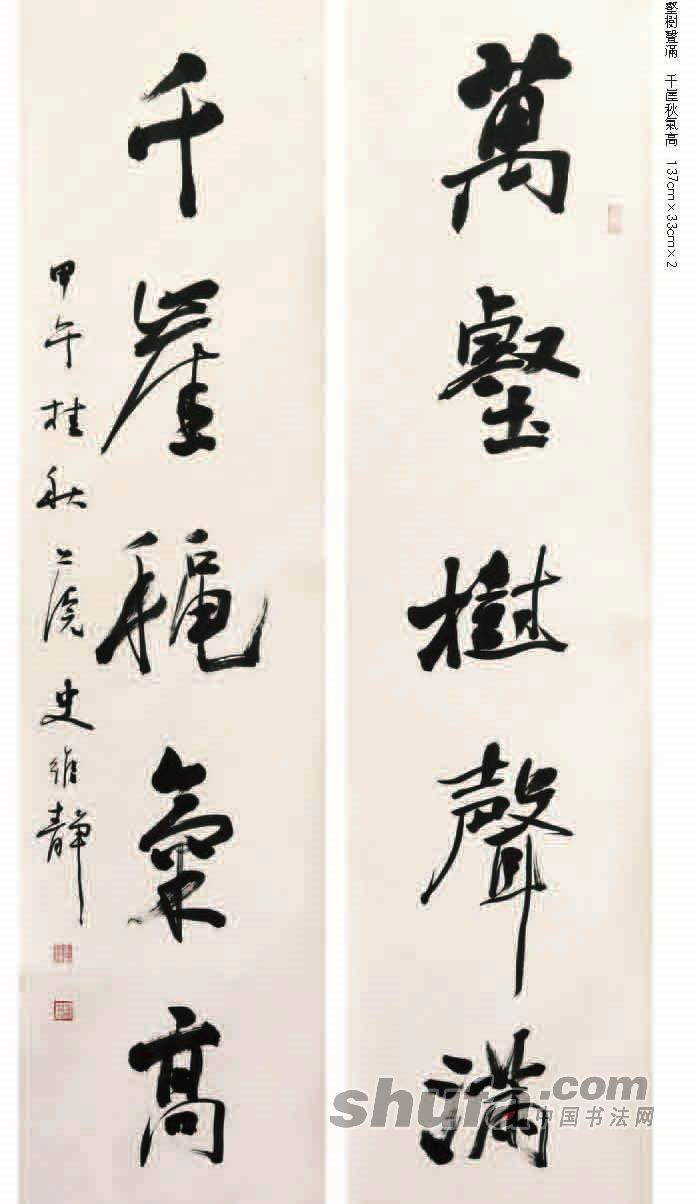 壑樹聲滿 千崖秋氣高 137cm×33cm×2
萬壑樹聲滿
千崖穐氣高
甲午桂秋上浣史維靜
shufa.com
中国书法网